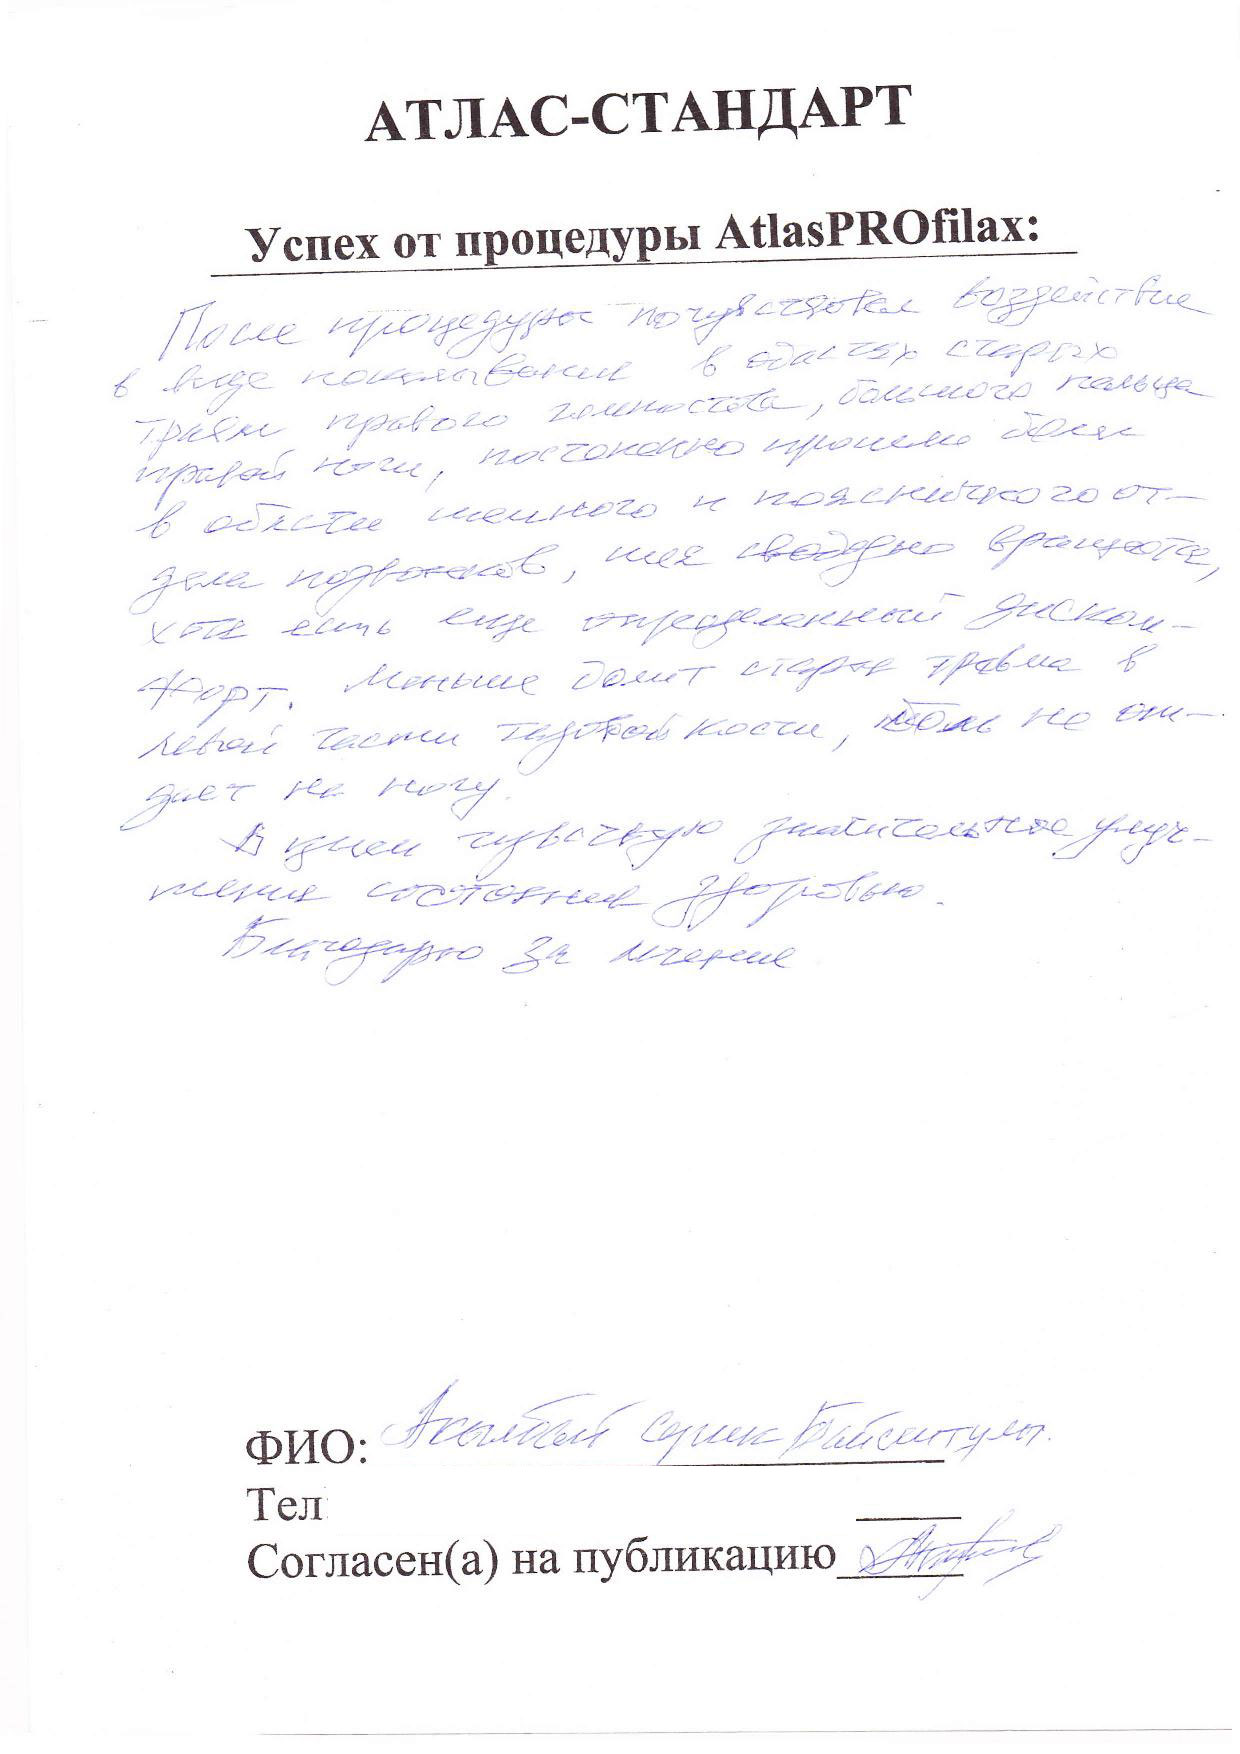 АТЛАС-СТАНДАРТ
Успех от процедуры AtlasPROfilax:
После процедуры почувствовал воздействие
в виде покалывания в области старых
травм правого голеностопа, большого пальца
правой ноги, постоянно прошли боли
в области шейного и поясничного от-
дела позвонков, шея свободно вращается,
хотя есть еще определенный диском-
форт. Меньше болит старая травма в
левой части тазобой кости, боль не от-
дает на ногу.
В целом чувствую значительное улуч-
шение состояния здоровью.
Благодарю за лечение
ФИО: Акылбай Серик Байсеитулы.
Тел
Согласен(а) на публикацию